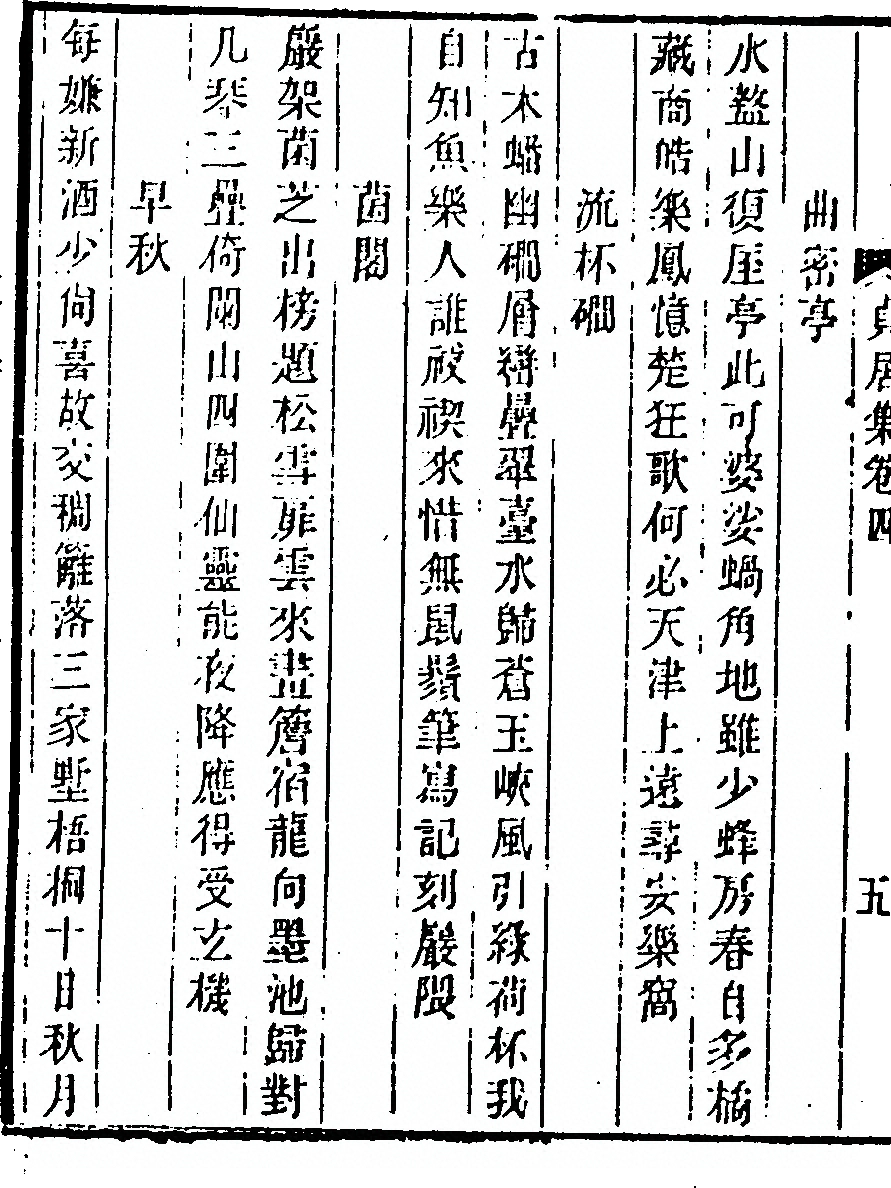 貞居集卷四
五
曲密亭
水盤山復屋亭此可婆娑蝸角地雖少蜂房春自多橘
藏商皓樂鳳憶楚狂歌何必天津上遠尋安樂窩
流杯磵
古木蟠幽磵層巒疊翠臺水歸蒼玉峽風引綠荷杯我
自知魚樂人誰祓禊來惜無鼠鬚筆寫記刻巖隈
菌閣
巖架菌芝出榜題松雪扉雲來畫簷宿龍向墨池歸對
几琴三疊倚闌山四圍仙靈能夜降應得受玄機
早秋
每嫌新酒少尚喜故交稠籬落三家墅梧桐十日秋月